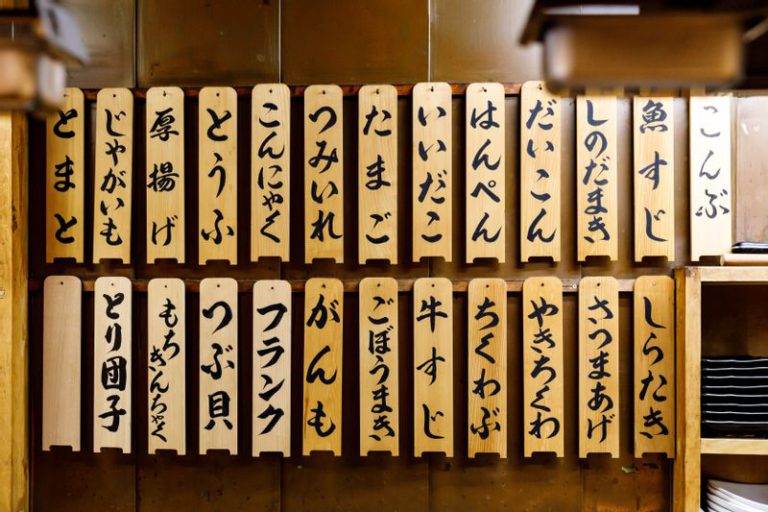 こんぶ
魚すじ
しのだまき
だいこん
はんぺん
いいだこ
たまご
つみいれ
こんにゃく
とうふ
厚揚げ
じゃがいも
とまと
しらたき
さつまあげ
やきちくわ
ちくわぶ
牛すじ
ごぼうまき
がんも
フランク
つぶ貝
もちきんちゃく
とり団子